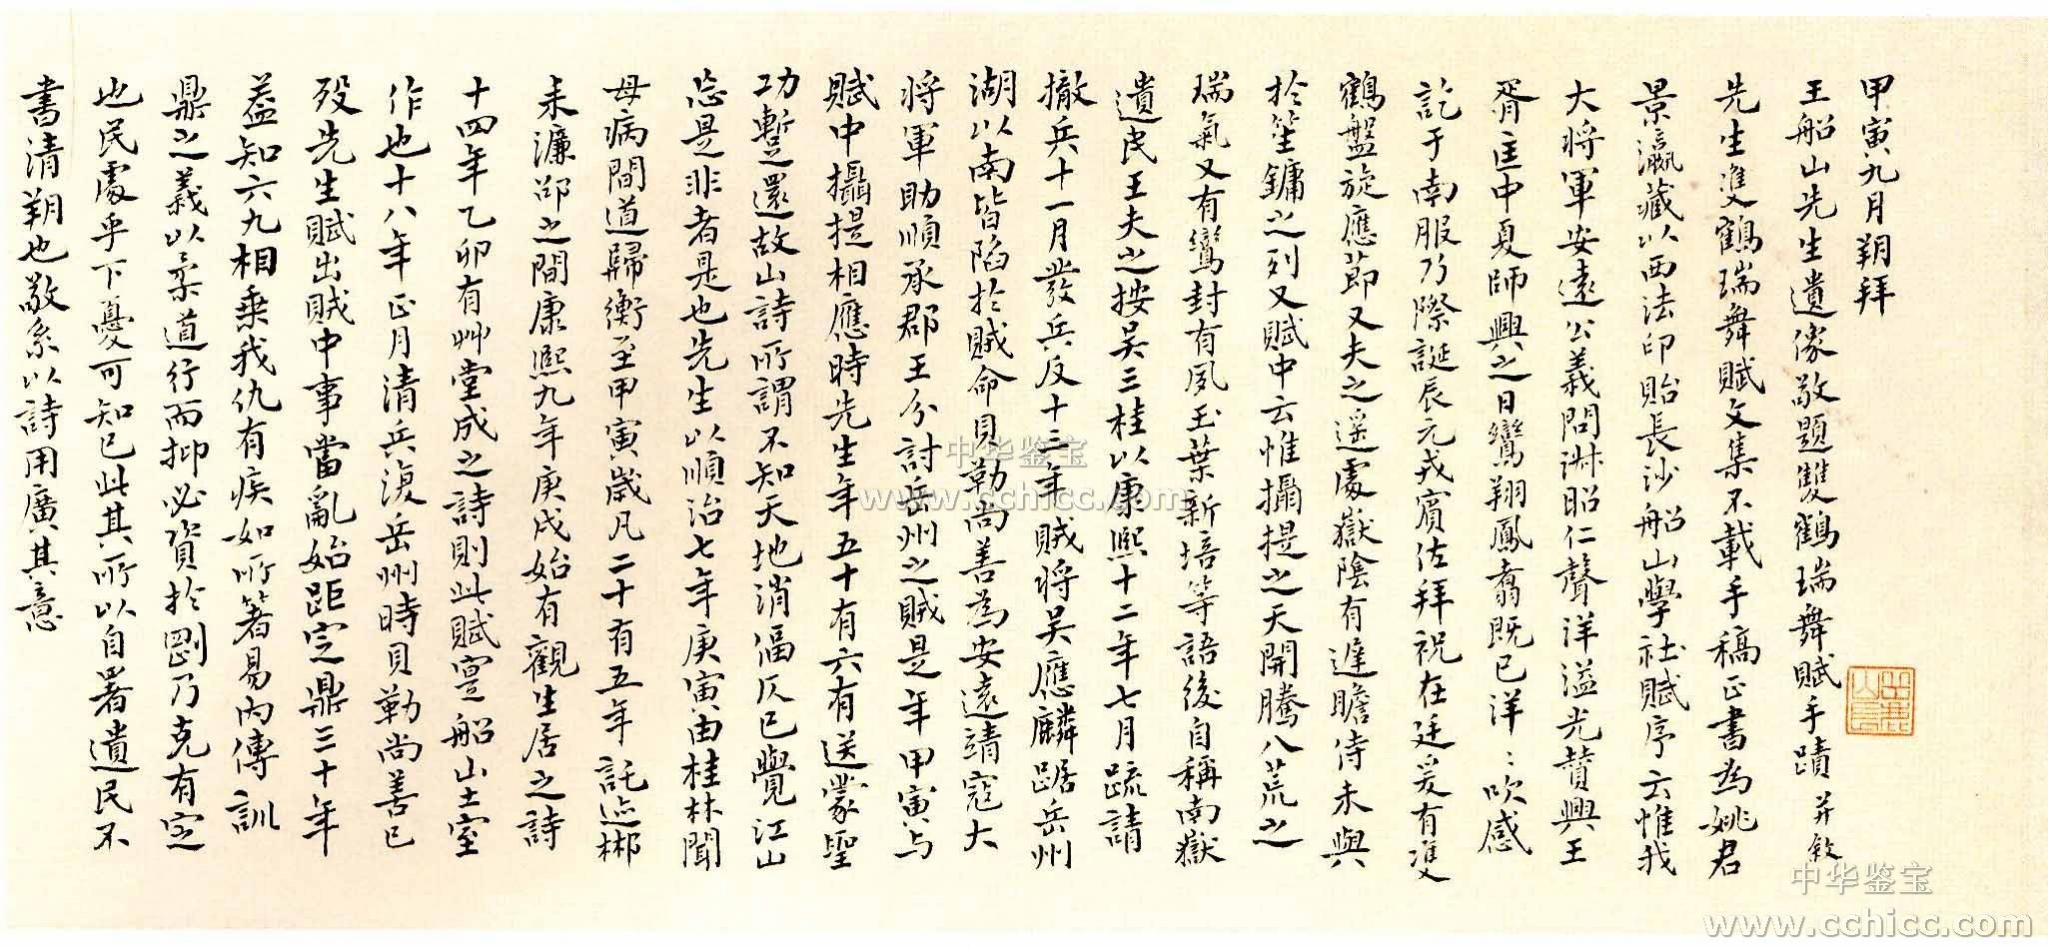 甲寅九月朔拜
王船山先生遺像敬題雙鶴瑞舞賦手蹟并敘
先生雙鶴瑞舞賦文集不載手稿正書為姚君
景瀛藏以西法印貽長沙船山學社賦序云惟我
大將軍安遠公義問淋昭仁聲洋溢光贊興王
胥匡中夏師興之日鸞翔鳳翥既已洋〻吹感
訖于南服乃際誕辰元戎賓佐拜祝在廷爰有雙
鶴盤旋應節又夫之遥處嶽陰有遲瞻侍未與
於笙鏞之列又賦中云惟攝提之天開騰八荒之
瑞氣又有鸞封有夙玉葉新培等語後自稱南嶽
遺民王夫之按吴三桂以康熙十二年七月疏請
撤兵十一月發兵反十三年賊將吴應麟踞岳州
湖以南皆陷於賊命貝勒尚善為安遠靖寇大
將軍助順承郡王分討岳州之賊是年甲寅与
賦中攝提相應時先生年五十有六有送蒙聖
功暫還故山詩所謂不知天地消偪仄已覺江山
忘是非者是也先生以順治七年庚寅由桂林聞
母病間道歸衡至甲寅歲凡二十有五年託迹郴
耒濂邵之間康熙九年庚戌始有觀生居之詩
十四年乙卯有艸堂成之詩則此賦寔船山土室
作也十八年正月清兵復岳州時貝勒尚善已
歿先生賦出賊中事當亂始距定鼎三十年
益知六九相乘我仇有疾如所著易内傳訓
鼎之義以柔道行而抑必資於剛乃克有定
也民處乎下憂可知已此其所以自署遺民不
書清朔也敬系以詩用廣其意
中华鉴宝
www.cchicc.com
中华鉴宝
www.cchicc.com